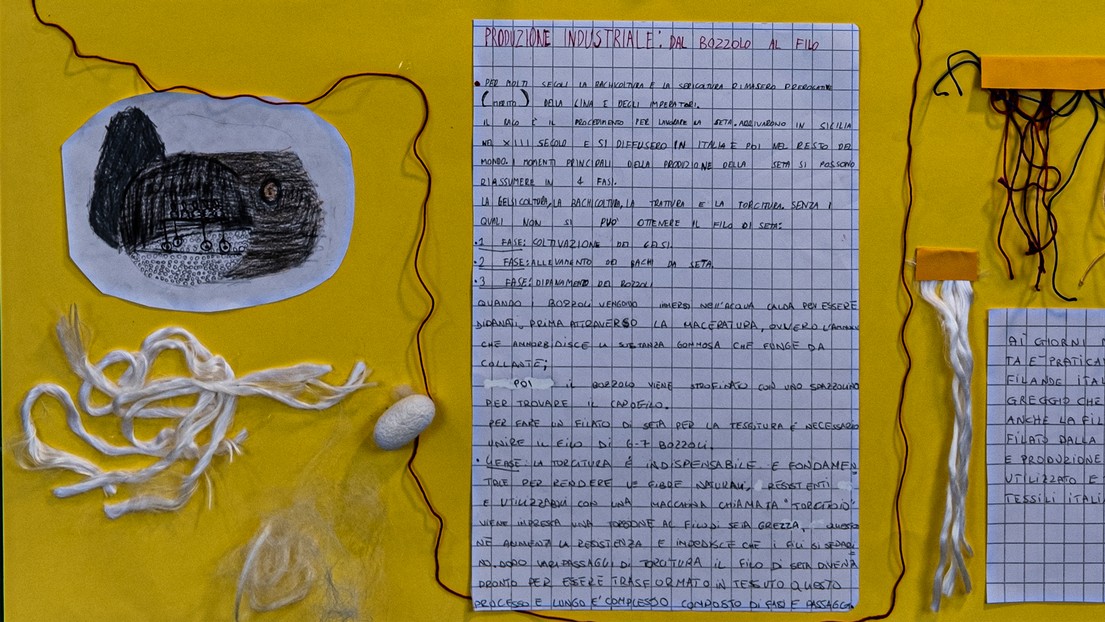 PRODUZIONE INDUSTRIALE: DAL BOZZOLO AL FILO
• PER MOLTI SECOLI LA BACHICOLTURA E LA SERICOLTURA RIMASERO PREROGATIVE
(MERITO) DELLA CINA E DEGLI IMPERATORI.
IL BACO E IL PROCEDIMENTO PER LAVORARE LA SETA ARRIVARONO IN SICILIA
NEL XIII SECOLO E SI DIFFUSERO IN ITALIA E POI NEL RESTO DEL
MONDO. I MOMENTI PRINCIPALI DELLA PRODUZIONE DELLA SETA SI POSSONO
RIASSUMERE IN 4 FASI.
LA GELSICOLTURA, LA BACHICOLTURA, LA TRATTURA E LA TORCITURA. SENZA I
QUALI NON SI PUO' OTTENERE IL FILO DI SETA:
• 1 FASE: COLTIVAZIONE DEI GELSI.
• 2 FASE: ALLEVAMENTO DEI BACHI DA SETA.
• 3 FASE: DIPANAMENTO DEI BOZZOLI
QUANDO I BOZZOLI VENGONO IMMERSI NELL'ACQUA CALDA PER ESSERE
DIPANATI, PRIMA ATTRAVERSO LA MACERATURA, OVVERO
CHE AMMORBIDISCE LA SOSTANZA GOMMOSA CHE FUNGE DA
COLLANTE;
POI IL BOZZOLO VIENE STROFINATO CON UNO SPAZZOLINO
PER TROVARE IL CAPOFILO.
PER FARE UN FILATO DI SETA PER LA TESSITURA É NECESSARIO
UNIRE IL FILO DI 6-7 BOZZOLI.
• 4 FASE: LA TORCITURA É INDISPENSABILE E FONDAMEN
TALE PER RENDERE LE FIBRE NATURALI, RESISTENTI
E UTILIZZABILI CON UNA MACCHINA CHIAMATA "TORCITOIO"
VIENE IMPRESSA UNA TORSIONE AL FILO DI SETA GREZZA, QUESTO
NE AUMENTA LA RESISTENZA E IMPEDISCE CHE I FILI SI SEPARI
NO. DOPO VARI PASSAGGI DI TORCITURA IL FILO DI SETA DIVENTA
PRONTO PER ESSERE TRASFORMATO IN TESSUTO QUESTO
PROCESSO E LUNGO E COMPLESSO COMPOSTO DI FASI E PASSAGGI.
AI GIORNI
TA E PRATICA
FILANDE ITAL
GREGGIO CHE
ANCHE LA FIL
FILATO DALLA
E PRODUZIONE
UTILIZZATO E
TESSILI ITALIA